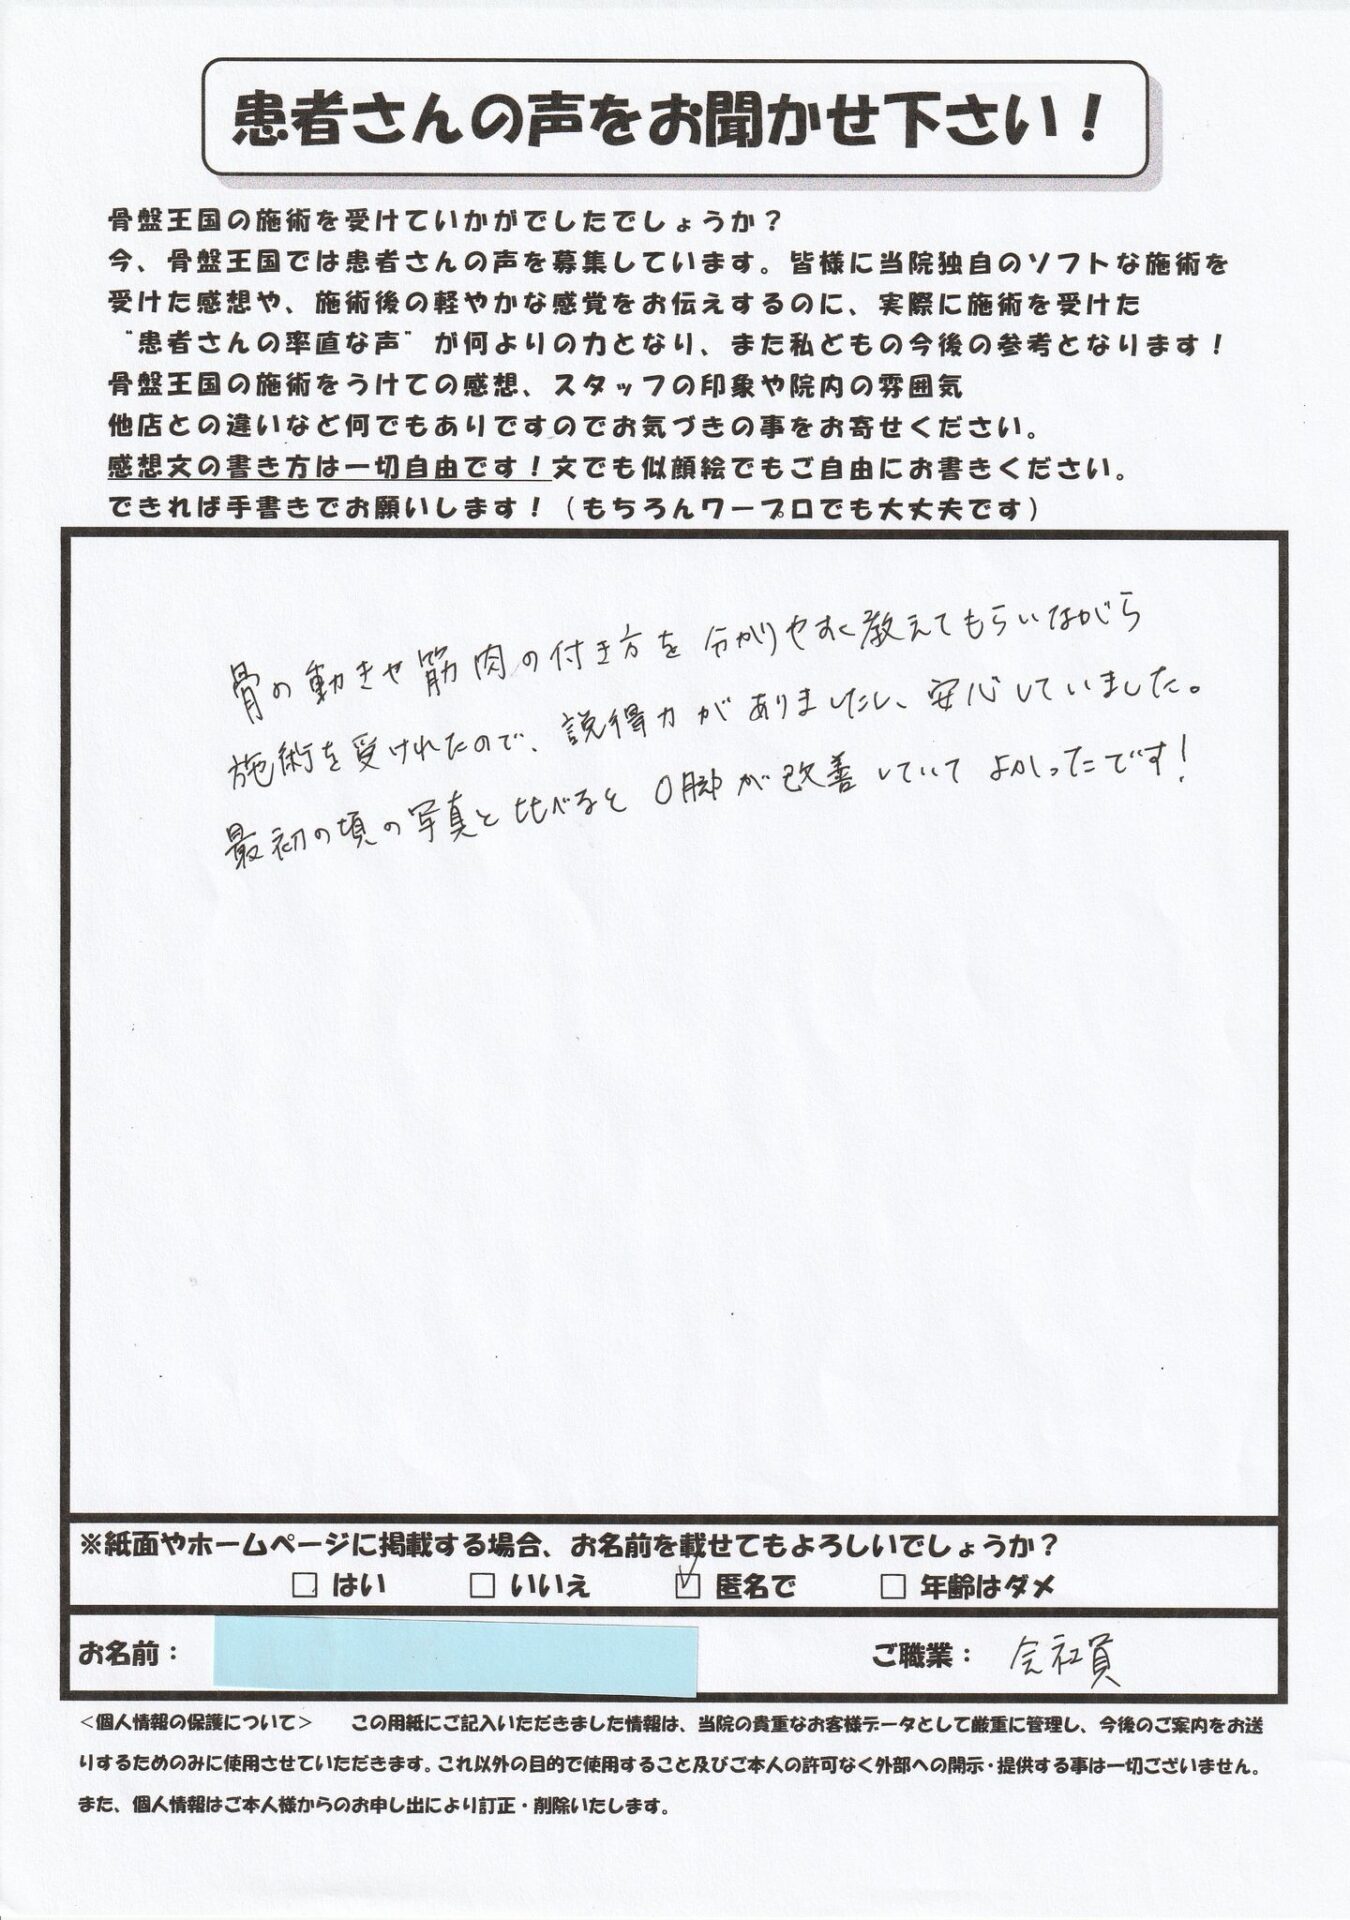 患者さんの声をお聞かせ下さい！
骨盤王国の施術を受けていかがでしたでしょうか？
今、骨盤王国では患者さんの声を募集しています。皆様に当院独自のソフトな施術を
受けた感想や、施術後の軽やかな感覚をお伝えするのに、実際に施術を受けた
“患者さんの率直な声”が何よりの力となり、また私どもの今後の参考となります！
骨盤王国の施術をうけての感想、スタッフの印象や院内の雰囲気
他店との違いなど何でもありですのでお気づきの事をお寄せください。
感想文の書き方は一切自由です！文でも似顔絵でもご自由にお書きください。
できれば手書きでお願いします！（もちろんワープロでも大丈夫です）
骨の動きや筋肉の付き方を分かりやすく教えてもらいながら
施術を受けれたので、説得力がありましたし、安心していました。
最初の頃の写真と比べるとO脚が改善していてよかったです！
※紙面やホームページに掲載する場合、お名前を載せてもよろしいでしょうか？
□ はい □ いいえ ☑ 匿名で □ 年齢はダメ
お名前： ご職業： 会社員
＜個人情報の保護について＞ この用紙にご記入いただきました情報は、当院の貴重なお客様データとして厳重に管理し、今後のご案内をお送
りするためのみに使用させていただきます。これ以外の目的で使用すること及びご本人の許可なく外部への開示・提供する事は一切ございません。
また、個人情報はご本人様からのお申し出により訂正・削除いたします。